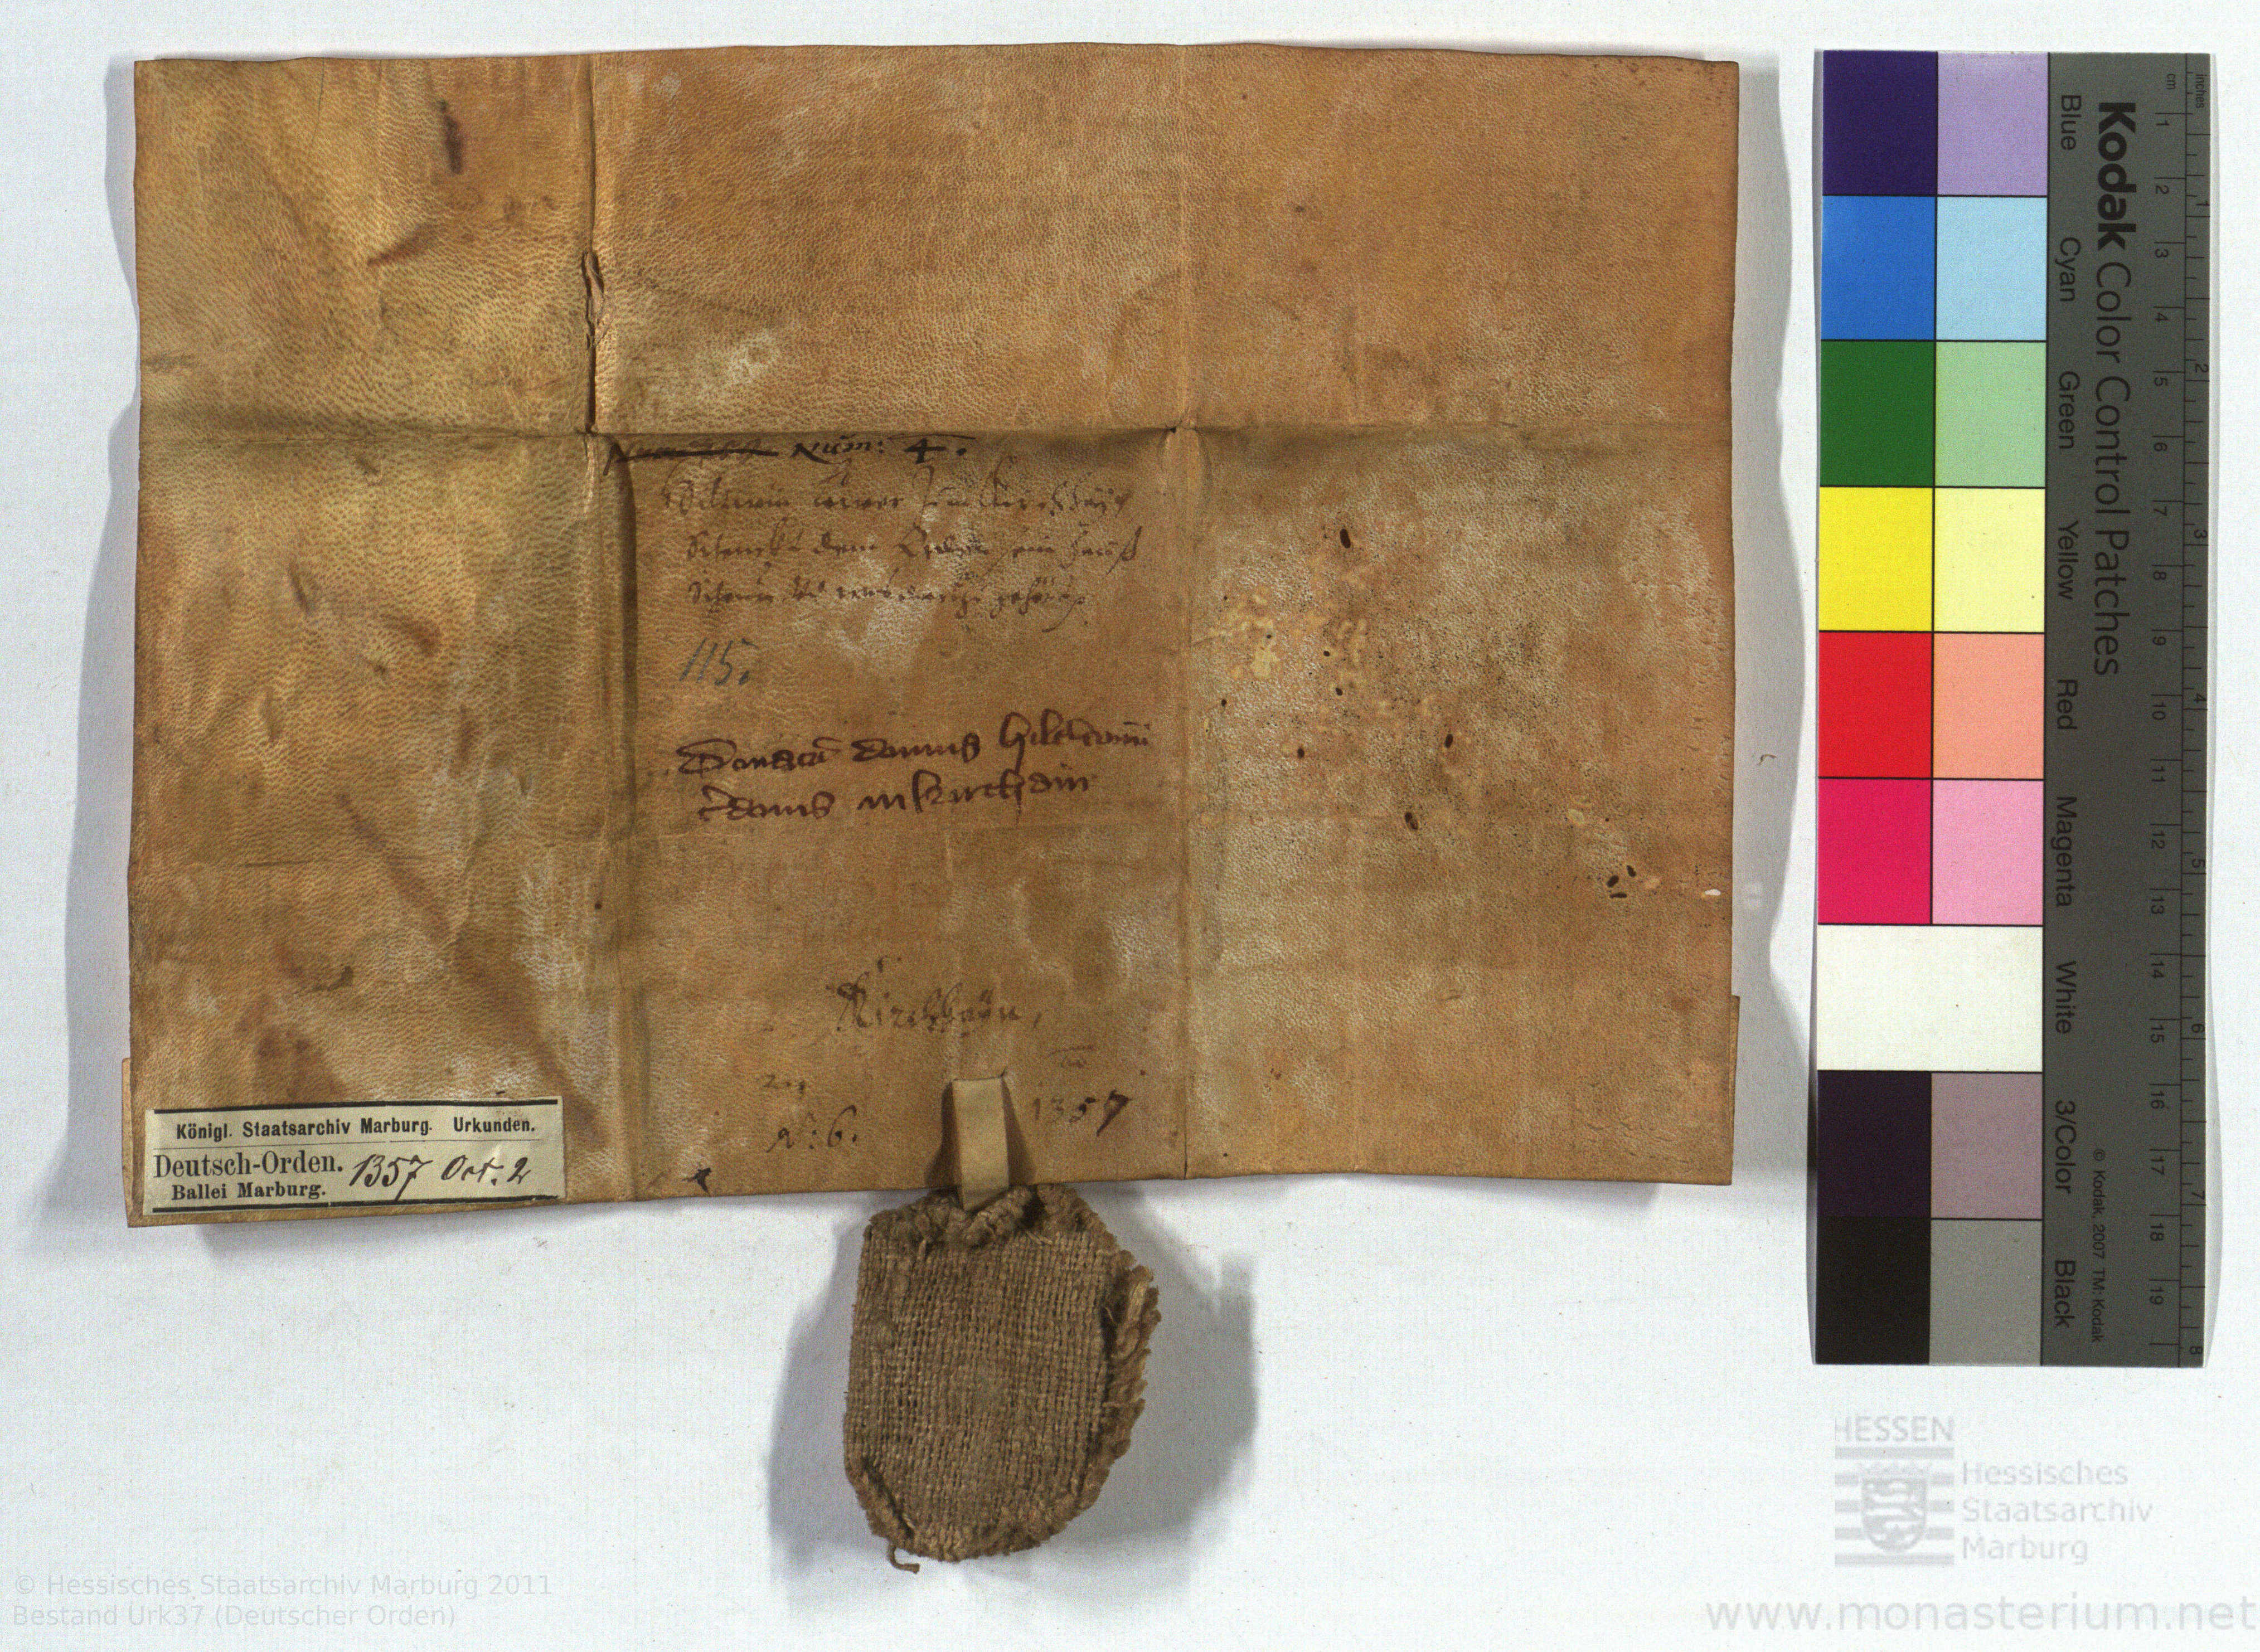 Num: 4.
Schenckt dem Orden sein hauß
115.
Donacio domus
cerdonis in kirchain
Kirchhayn,
N: 6.
1357
Königl. Staatsarchiv Marburg. Urkunden.
Deutsch-Orden. 1357 Oct. 2
Ballei Marburg.
Kodak Color Control Patches
Blue Cyan Green Yellow Red Magenta White 3/Color Black
© Kodak, 2007 TM: Kodak
inches
1 2 3 4 5 6 7 8
cm
1 2 3 4 5 6 7 8 9 10 11 12 13 14 15 16 17 18 19
HESSEN
Hessisches
Staatsarchiv
Marburg
© Hessisches Staatsarchiv Marburg 2011
Bestand Urk37 (Deutscher Orden)
www.monasterium.net